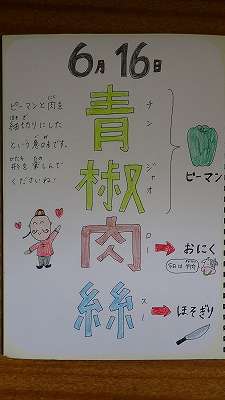 6月16日
ピーマンと肉を
細切りにした
という意味です。
形を楽しんで
くださいね!
青椒肉絲
チンジャオロースー
ピーマン
おにく
ほそぎり